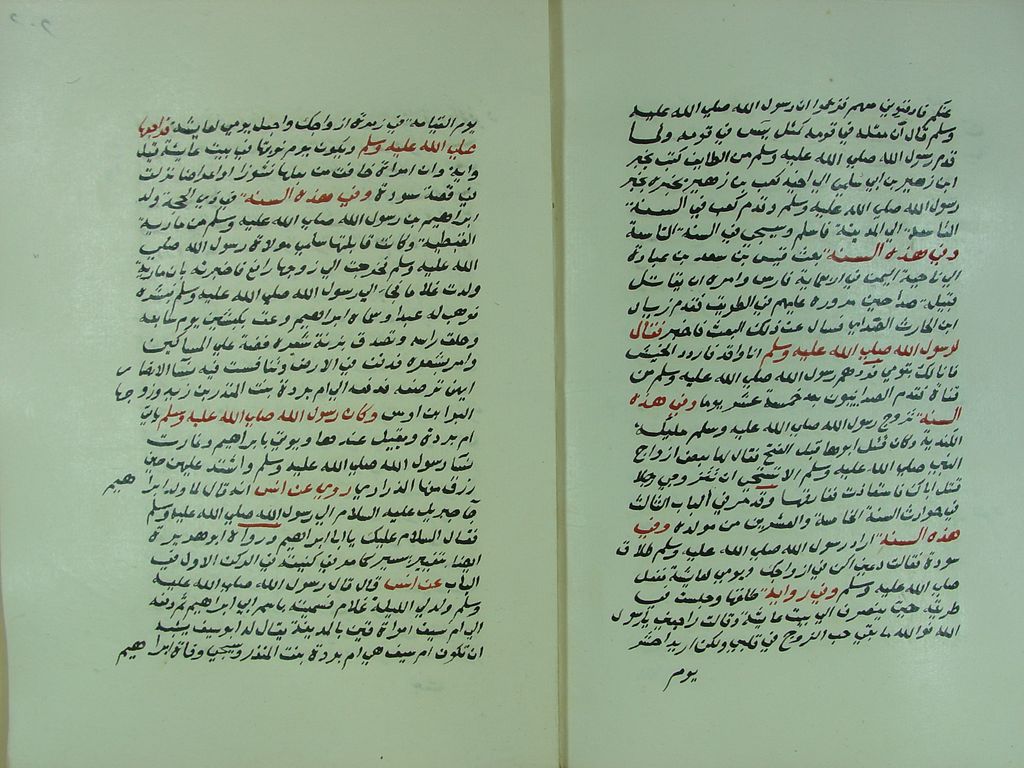 عنكم فادفنوني معهم فزعموا ان رسول الله صلى الله عليه
وسلم قال ان مثله في قومه كمثل يس في قومه ولما
قدم رسول الله صلى الله عليه وسلم من الطايف كتب بجير
ابن زهير بن ابي سلمى الى اخيه كعب بن زهير يخبره بخبر
رسول الله صلى الله عليه وسلم وقدم كعب في السنة
التاسعة الى المدينة فاسلم وسيجي في السنة التاسعة
وفي هذه السنة بعث قيس بن سعد بن عبادة
الى ناحية اليمن في اربعماية فارس وامره ان يقاتل
قبيلة صداحين مروره عليهم في الطريق فقدم زياد
ابن الحارث الصداي فسال عن ذلك البعث فاخبر فقال
لرسول الله صلى الله عليه وسلم انا وافد فاردد الجيش
فانا لك بقومي فردهم رسول الله صلى الله عليه وسلم من
قناة فقدم الصدائيون بعد خمسة عشر يوما وفي هذه
السنة تزوج رسول الله صلى الله عليه وسلم مليكة
الكندية وكان قتل ابوها قبل الفتح فقال لها بعض ازواج
النبي صلى الله عليه وسلم الا تستحي ان تتزوجي رجلا
قتل اباك فاستعاذت ففارقها وقد مر في الباب الثالث
في حوادث السنة الخامسة والعشرين من مولده وفي
هذه السنة اراد رسول الله صلى الله عليه وسلم طلاق
سودة فقالت دعني اكن في ازواجك ويومي لعائشة ففعل
صلى الله عليه وسلم وفي رواية طلقها وجلست في
طريقه حين ينصرف الى بيت عائشة وقالت راجعني يارسول
الله فوالله ما بقي حب الزوج في قلبي ولكن اريد احشر
يوم
يوم القيامة في زمرة ازواجك واجعل يومي لعايشة فراجعها
صلى الله عليه وسلم ويكون يوم نوبتها في بيت عايشة قيل
واية وان امراة خافت من بعلها نشوزا او اعراضا نزلت
في قصة سودة وفي هذه السنة في ذي الحجة ولد
ابراهيم بن رسول الله صلى الله عليه وسلم من مارية
القبطية وكانت قابلتها سلمى مولاة رسول الله صلى
الله عليه وسلم فخرجت الى زوجها ابي رافع فاخبرته بان مارية
ولدت غلاما فجا الى رسول الله صلى الله عليه وسلم فبشره
فوهب له عبدا وسماه ابراهيم وعق بكبشين يوم سابعه
وحلق راسه وتصدق بزنة شعره فضة على المساكين
وامر بشعره فدفنت في الارض وتنافست فيه نسآ الانصار
ايتهن ترضعه فدفعه الى ام بردة بنت المنذر بن زيد وزوجها
البرا بن اوس وكان رسول الله صلى الله عليه وسلم ياتي
ام بردة ويقيل عندها ويوتى بابراهيم وغارت
نسآ رسول الله صلى الله عليه وسلم واشتد عليهن حين
رزق منها الذراري روي عن انس انه قال لما ولد ابراهيم
جآ جبريل عليه السلام الى رسول الله صلى الله عليه وسلم
فقال السلام عليك يا ابا ابراهيم ورواه ابو هريرة
ايضا بتغيير يسير كما مر في كنيته في الركن الاول في
الباب عن انس قال قال رسول الله صلى الله عليه
وسلم ولد لي الليلة غلام فسميته باسم ابي ابراهيم ثم دفعه
الى ام سيف امراة قين بالمدينة يقال له ابو سيف يشبه
ان تكون ام سيف هي ام بردة بنت المنذر وسيجي وفاة ابراهيم